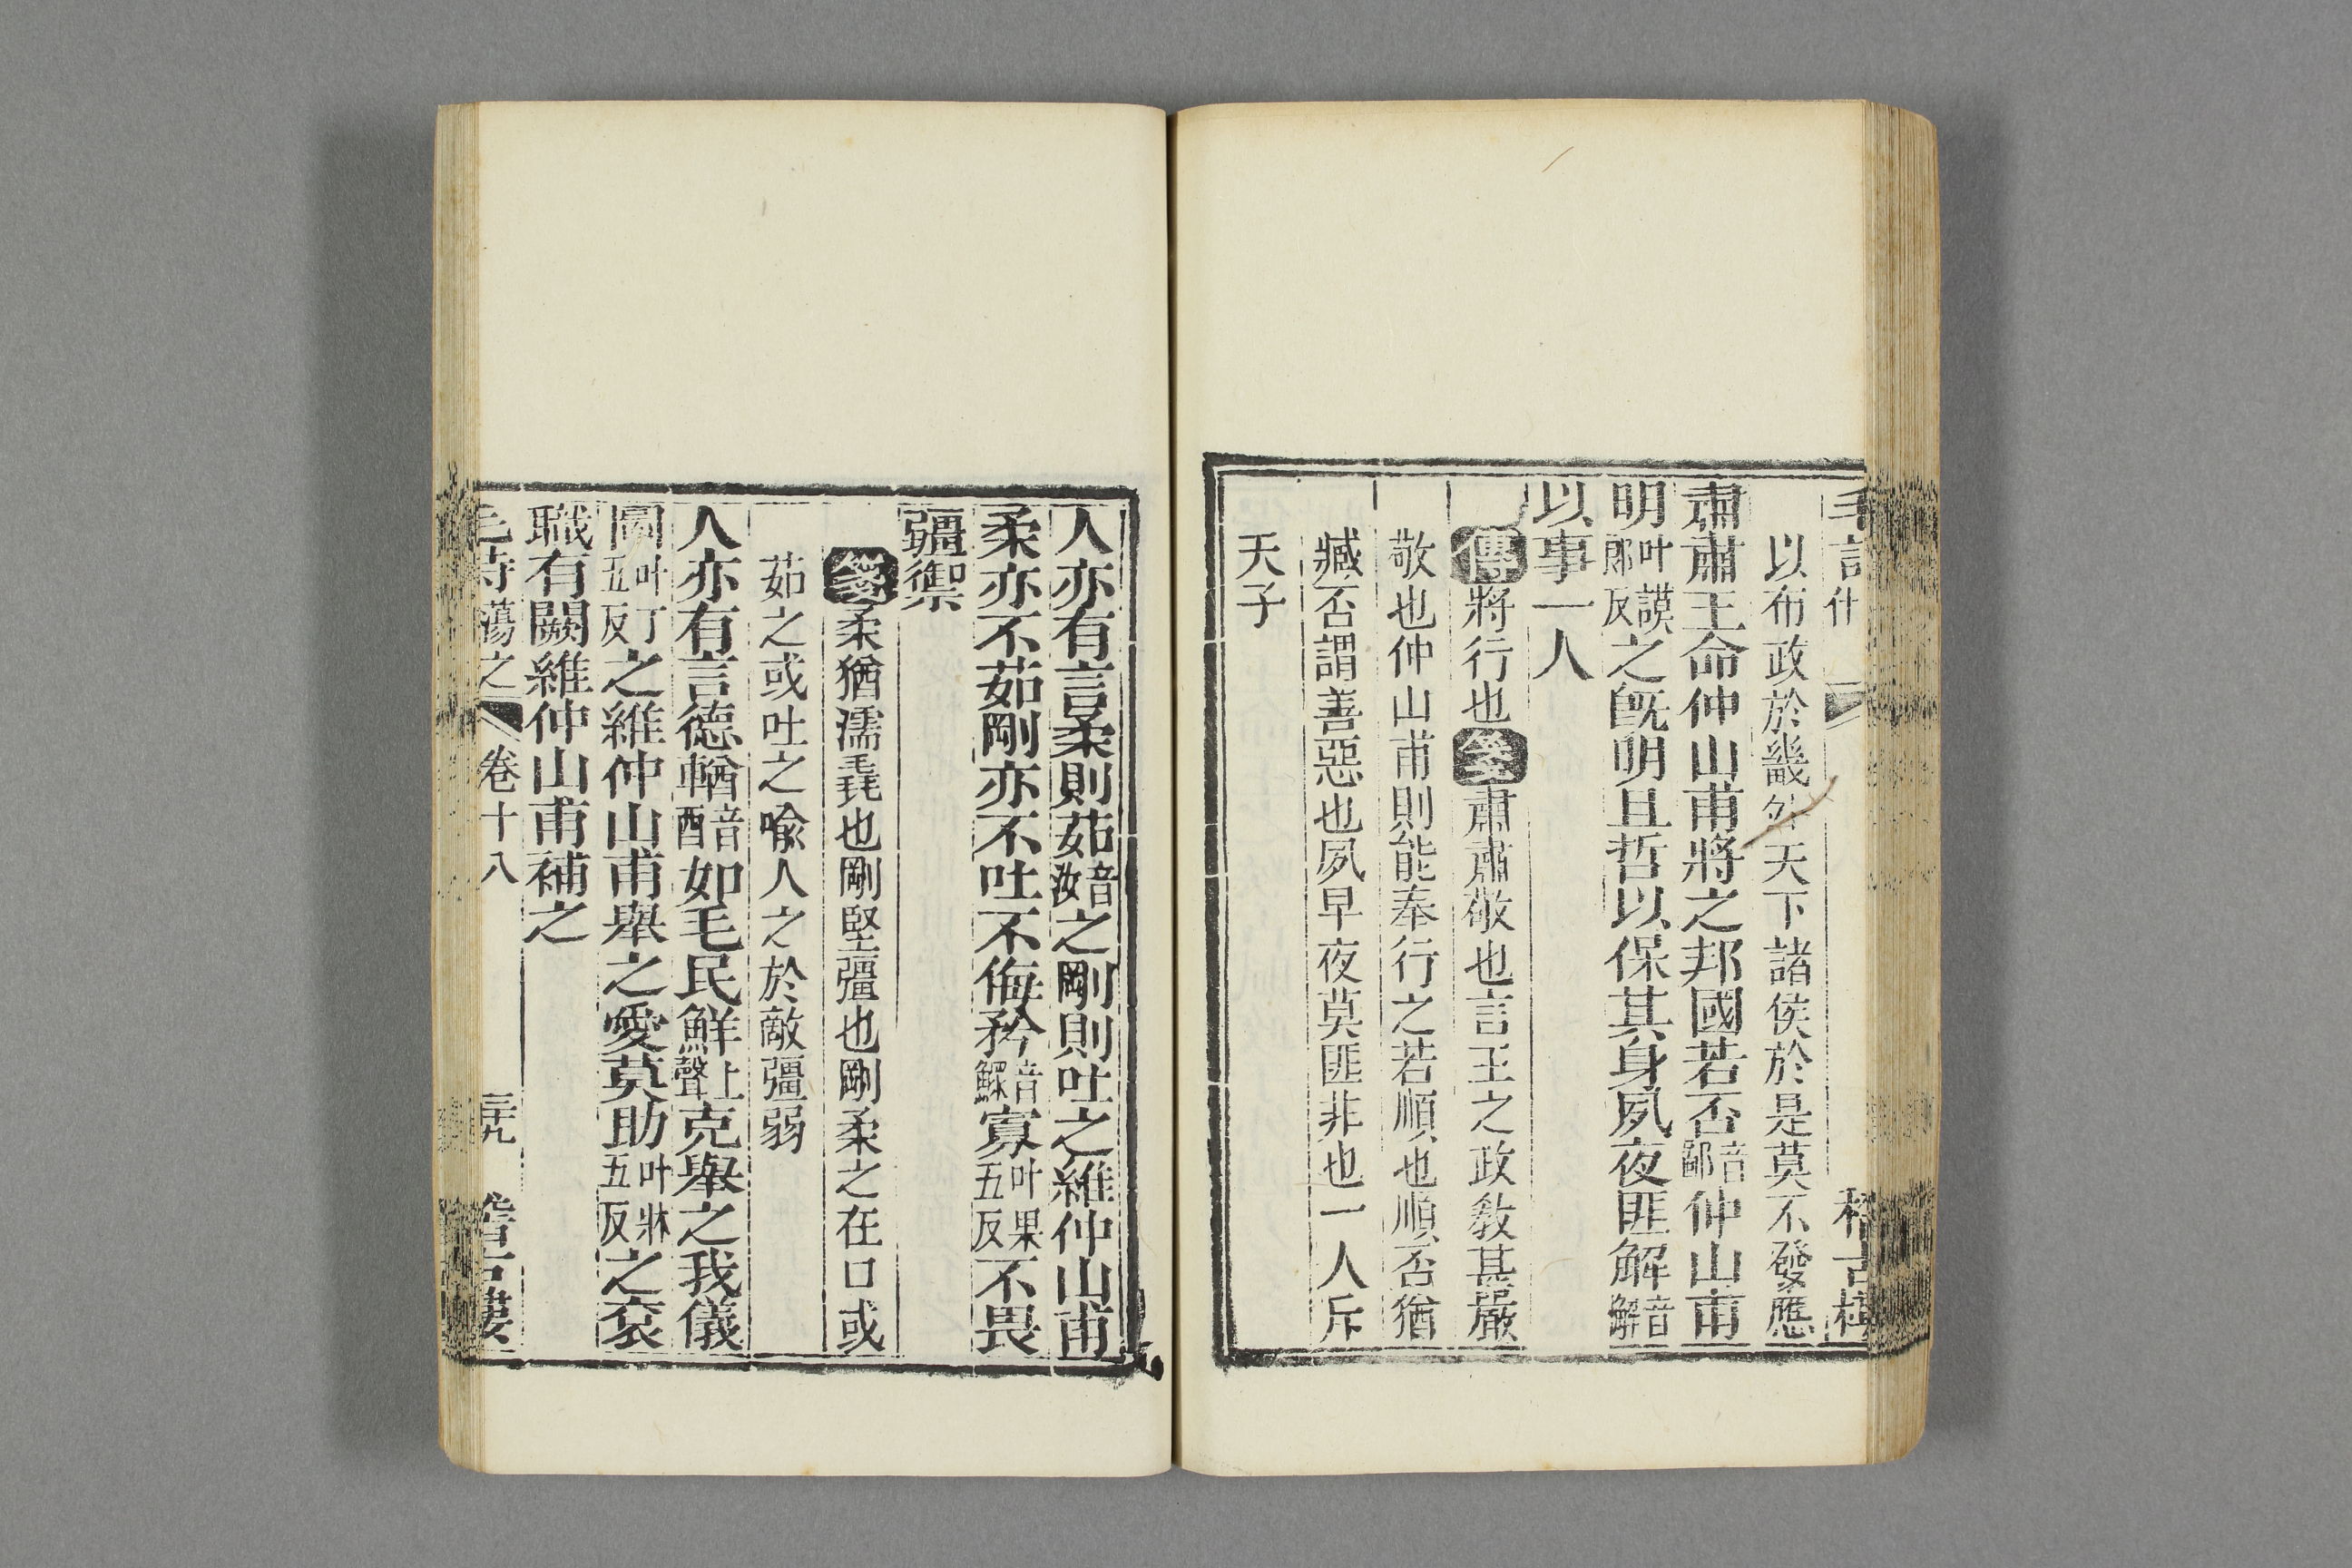 以布政於畿外天下諸侯於是莫不發應
肅肅王命仲山甫將之邦國若否音鄙仲山甫
明叶謨郎反之旣明且哲以保其身夙夜匪解音懈
以事一人
傳將行也箋肅肅敬也言王之政敎甚嚴
敬也仲山甫則能奉行之若順也順否猶
臧否謂善惡也夙早夜莫匪非也一人斥
天子
人亦有言柔則茹音汝之剛則吐之維仲山甫
柔亦不茹剛亦不吐不侮矜音鰥寡叶果五反不畏
彊禦
箋柔猶濡毳也剛堅彊也剛柔之在口或
茹之或吐之喻人之於敵彊弱
人亦有言德輶音酉如毛民鮮上聲克舉之我儀
圖叶丁五反之維仲山甫舉之愛莫助叶牀五反之袞
職有闕維仲山甫補之
毛詩 蕩之 卷十八 三九 稽古樓